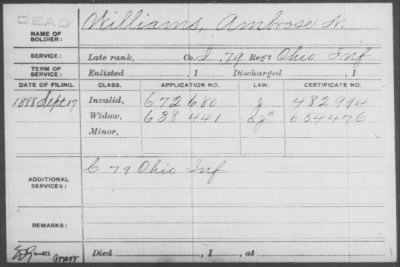 DEAD
NAME OF SOLDIER: Williams, Ambrose W.
SERVICE: Late rank, Co. I. 79 Reg't Ohio Inf
TERM OF SERVICE: Enlisted , 1 Discharged , 1
DATE OF FILING. CLASS. APPLICATION NO. LAW. CERTIFICATE NO.
1888 Sept 17 Invalid, 672 680 J 482994
Widow, 638 441 654476
Minor,
ADDITIONAL SERVICES: C. 79 Ohio Inf
REMARKS:
Died , 1 , at